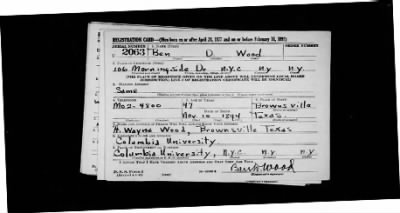 REGISTRATION CARD—(Men born on or after April 28, 1877 and on or before February 16, 1897)
SERIAL NUMBER 1. NAME (Print) ORDER NUMBER
2063 Ben D. Wood
2. PLACE OF RESIDENCE (Print)
106 Morningside Dr N.Y.C N.Y N.Y.
(THE PLACE OF RESIDENCE GIVEN ON THE LINE ABOVE WILL DETERMINE LOCAL BOARD
JURISDICTION; LINE 2 OF REGISTRATION CERTIFICATE WILL BE IDENTICAL)
3. MAILING ADDRESS
Same
4. TELEPHONE 5. AGE IN YEARS 6. PLACE OF BIRTH
MO2-4800 47 Brownsville
DATE OF BIRTH
Nov. 10 1894 Texas.
7. NAME AND ADDRESS OF PERSON WHO WILL ALWAYS KNOW YOUR ADDRESS
H. Wayne Wood, Brownsville Texas
8. EMPLOYER'S NAME AND ADDRESS
Columbia University
9. PLACE OF EMPLOYMENT OR BUSINESS
Columbia University, N.Y.C N.Y. N.Y.
I AFFIRM THAT I HAVE VERIFIED ABOVE ANSWERS AND THAT THEY ARE TRUE.
D. S. S. Form 1
Wood